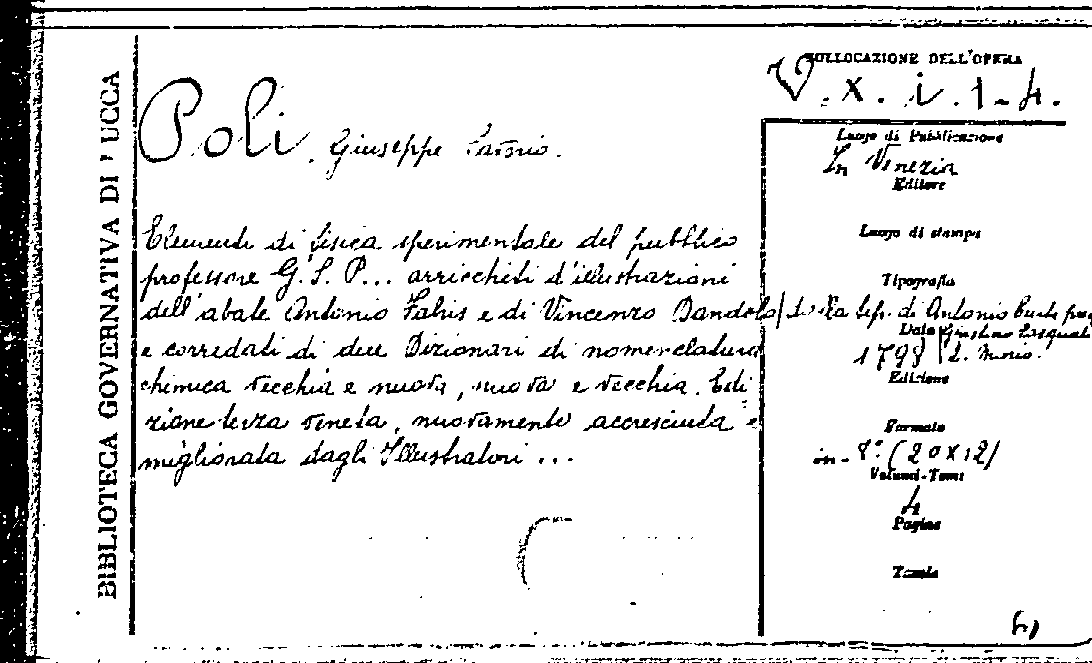 BIBLIOTECA GOVERNATIVA DI LUCCA
COLLOCAZIONE DELL'OPERA
V. x. i. 1-4.
Poli, Giuseppe Saverio.
Luogo di Pubblicazione
In Venezia
Editore
Elementi di fisica sperimentale del pubblico
Luogo di stampa
professore G. S. P... arricchiti d'illustrazioni
Tipografia
dell'abate Antonio Fabris e di Vincenzo Dandolo
di Antonio
Data
Giustino Pasquali
e corredati di due Dizionari di nomenclatura
1798
Edizione
chimica vecchia e nuova, nuova e vecchia. Edi
zione terza veneta, nuovamente accresciuta e
Formato
migliorata dagli Illustratori ...
in-8° (20x12)
Volumi-Tomi
4
Pagine
Tavole